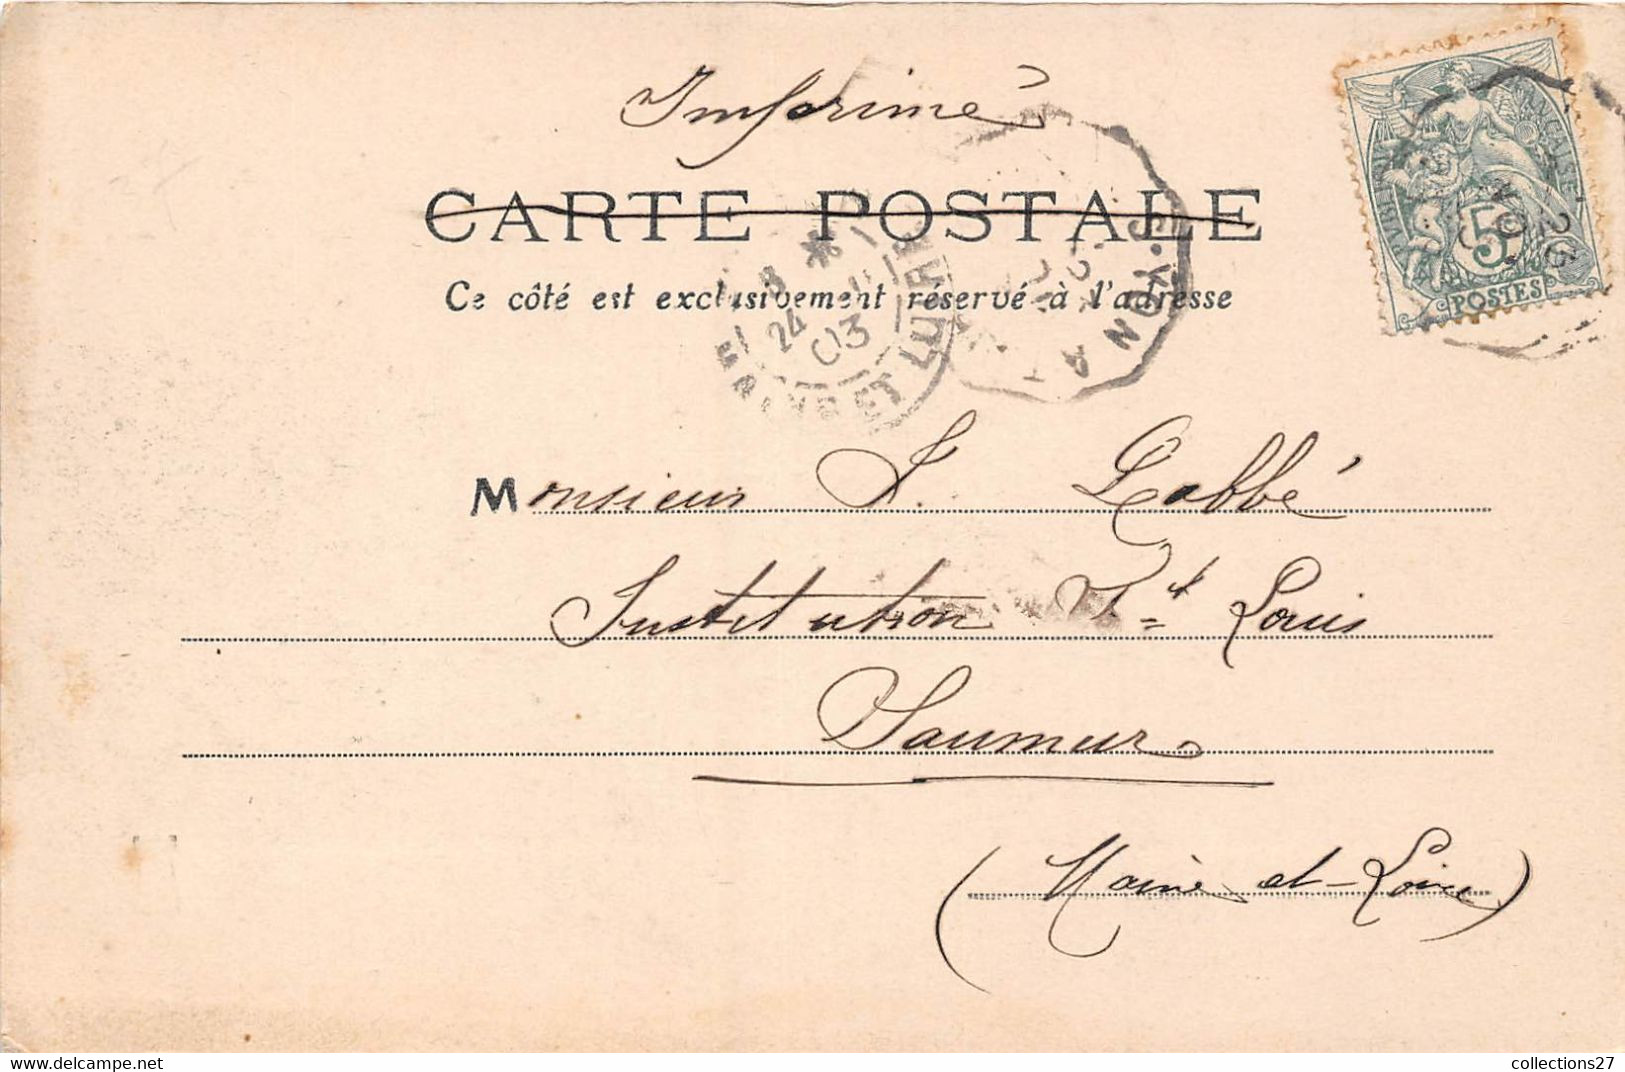 Imprimé
CARTE POSTALE
Ce côté est exclusivement réservé à l'adresse
POSTES
5
24
03
MAINE ET LOIRE
Monsieur F. Labbé
Institution St Louis
Saumur
(Maine et-Loire)
collections27